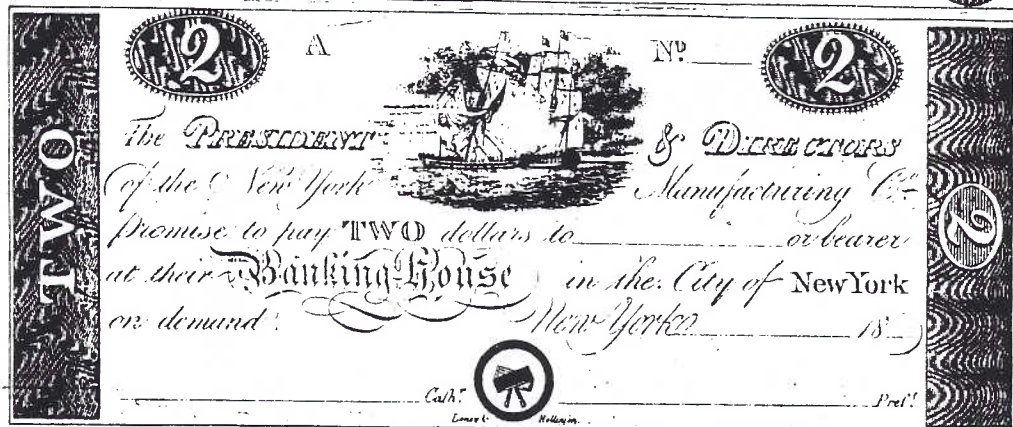 2 A Nº 2
The PRESIDENT & DIRECTORS
of the New York Manufacturing Co.
promise to pay TWO dollars to or bearer
at their Banking House in the City of New York
on demand. New York 18
Cashr. Presr.
Leney &
TWO
2